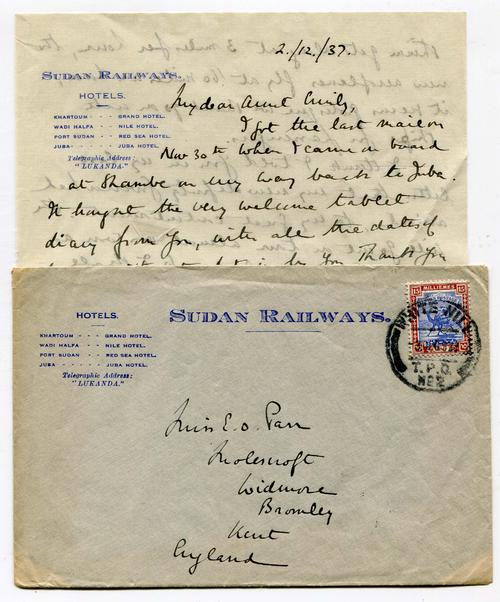 2./12./37.
SUDAN RAILWAYS.
HOTELS.
KHARTOUM - - - GRAND HOTEL.
WADI HALFA - - NILE HOTEL.
PORT SUDAN - - RED SEA HOTEL.
JUBA - - - - - JUBA HOTEL.
Telegraphic Address:
"LUKANDA."
My dear Aunt Emily,
I got the last mail on
Nov 30th when I came on board
at Shambe on my way back to Juba.
It brought the very welcome tablet
diary from you, with all the dates of
you Thank you
HOTELS.
KHARTOUM - - - GRAND HOTEL.
WADI HALFA - - NILE HOTEL.
PORT SUDAN - - RED SEA HOTEL.
JUBA - - - - - JUBA HOTEL.
Telegraphic Address:
"LUKANDA."
SUDAN RAILWAYS.
15 MILLIEMES 15
WHITE NILE
T.P.O.
No 2
Miss E. O. Parr
Molescroft
Widmore
Bromley
Kent
England